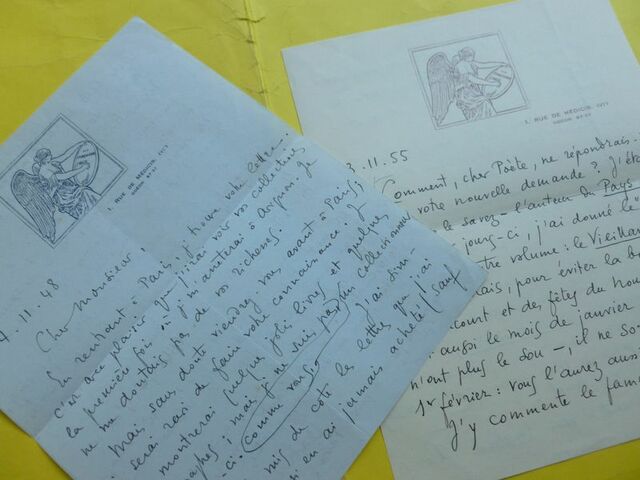 1, RUE DE MEDICIS, (VIe)
ODEON
.11.48
Cher Monsieur,
En rentrant à Paris, j'trouve votre lettre.
C'est avec plaisir que j'irai voir vos collections
la première fois où j'm'arrêterai à Avignon. Je
ne me doutais pas de vos richesses.
Mais sans doute viendrez-vous avant à Paris;
serai ravi de faire votre connaissance. J
montrerai quelques jolis livres et quelques
aphes; mais je ne suis pas un collectionneur
comme vous
-ci. J'ai sim-
mis de côté les lettres que j'ai
n'en ai jamais acheté (sauf
1, RUE DE MEDICIS, (VIe)
ODEON
3.11.55
Comment, cher Poète, ne répondrais-
votre nouvelle demande? J'ét
le savez - l'auteur du Pays
jours-ci, j'ai donné le
tre volume: le Vieillar
rais, pour éviter la b
court et des fêtes du nou
aussi le mois de janvier
n'ont plus le sou -, il ne so
1er février: vous l'aurez aussi
J'y commente le fam